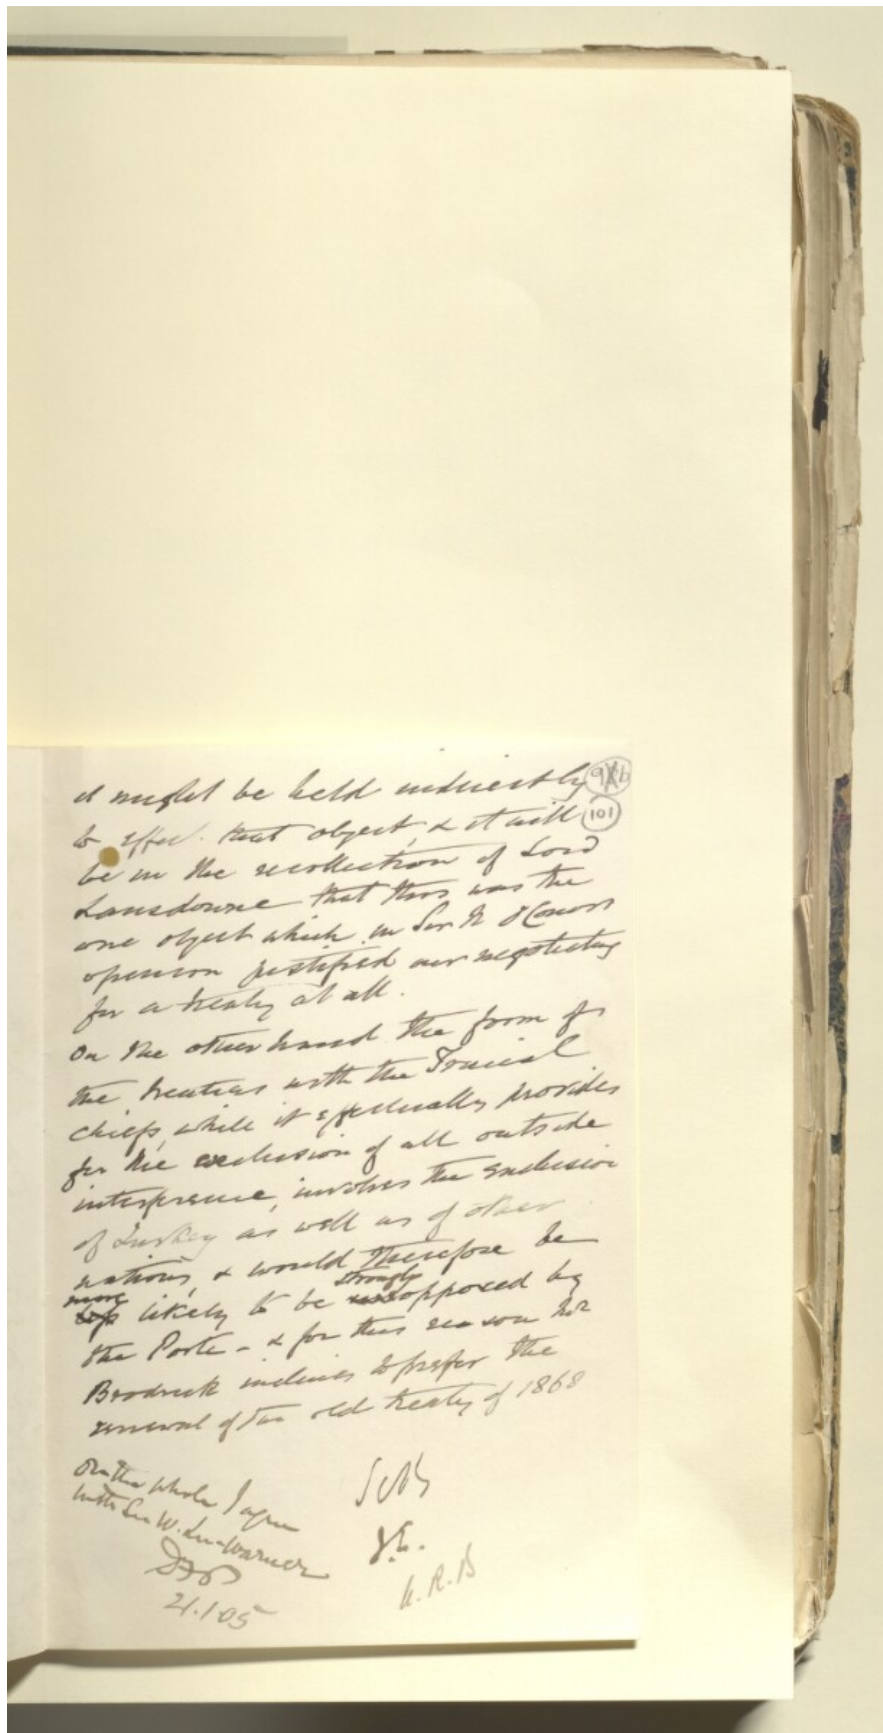 it might be held indirectly
to effect that object, & it will
101
be in the recollection of Lord
Lansdowne that this was the
one object which in Sir N O'Conor's
opinion justified our negotiating
for a treaty at all.
On the other hand the form of
the treaties with the Trucial
chiefs, while it effectually provides
for the exclusion of all outside
interference, involves the exclusion
of Turkey as well as of other
nations, & would therefore be
more likely to be strongly opposed by
the Porte - & for this reason Mr
Brodrick inclines to prefer the
renewal of the old treaty of 1868
On the whole I agree
with Sir W. Lee-Warner
21.1.05
A.R.B